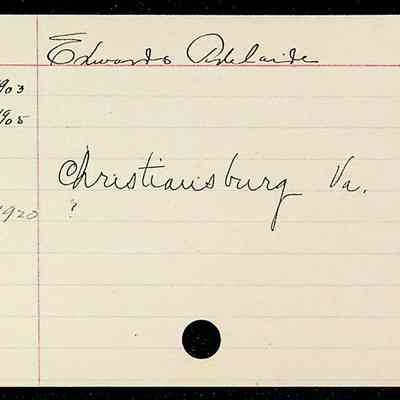 Edwards Adelaide
903
905
Christiansburg Va.
1920 ?